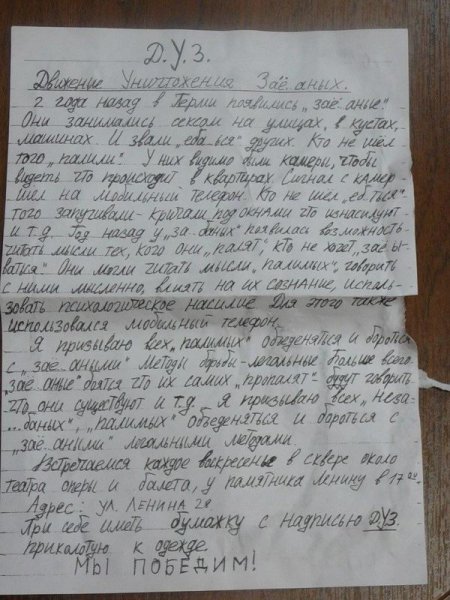 Д.У.З.
Движение Уничтожения Заё аных.
2 года назад в Перми появились „заё аные"
Они занимались сексом на улицах, в кустах,
машинах. И звали „еба ься" других. Кто не шёл
того „палили". У них видимо были камеры, чтобы
видеть что происходит в квартирах. Сигнал с камер
шёл на мобильный телефон. Кто не шёл „еб ться"
того запугивали - кричали под окнами что изнасилуют -
и т.д. Год назад у „за баных" появилась возможность-
читать мысли тех, кого они „палят", кто не хочет „заё ы-
ваться". Они могли читать мысли „палимых", говорить
с ними мысленно, влиять на их сознание, исполь-
зовать психологическое насилие. Для этого также
использовался мобильный телефон.
Я призываю всех „палимых" объеденятся и бороться
с „заё аными" Методы борьбы - легальные больше всего
„заё аные" боятся что их самих „пропалят" - будут говорить
что они существуют и т.д. Я призываю всех „неза-
...баных", „палимых" объеденяться и бороться с
„заё аными" легальними методами.
Встречаемся каждое воскресенье в сквере около
театра оперы и балета, у памятника Ленину в 17 00
Адрес: ул. Ленина
При себе иметь бумажку с надписью Д.У.З.
приколотую к одежде.
МЫ ПОБЕДИМ!